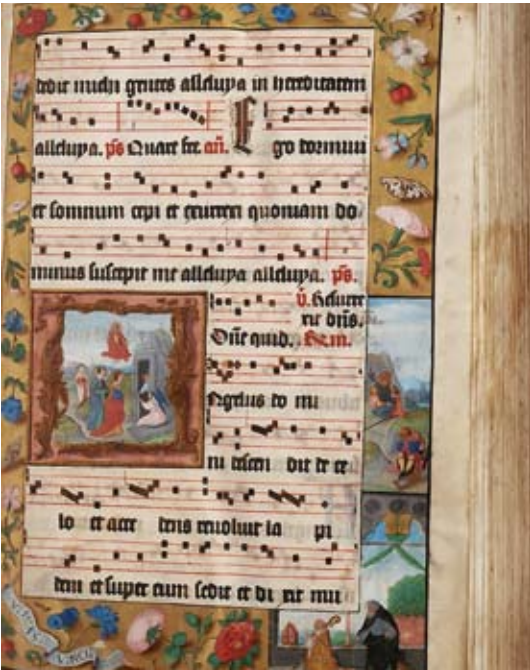 dedit michi gentes alleluya in hereditatem
alleluya. p̄s Quare fre. an̄. Ego dormiui
et somnum cepi et exurrexi quoniam do
minus suscepit me alleluya alleluya. p̄s.
v̄. Resurre
xit dn̄s.
Dn̄e quid.
Angelus do mi
ni descen dit de ce
lo et acce dens reuoluit la pi
dem et super eum sedit et di xit mu